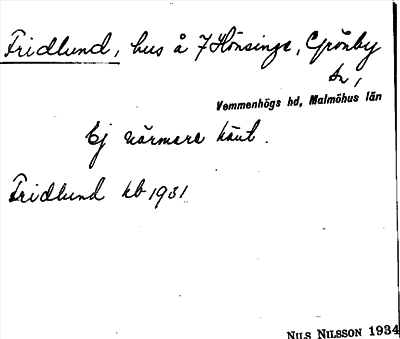 Fridlund, hus å 7 Hönsinge, Grönby
sn,
Vemmenhögs hd, Malmöhus län
Ej närmare känt.
Fridlund kb 1931
NILS NILSSON 1934